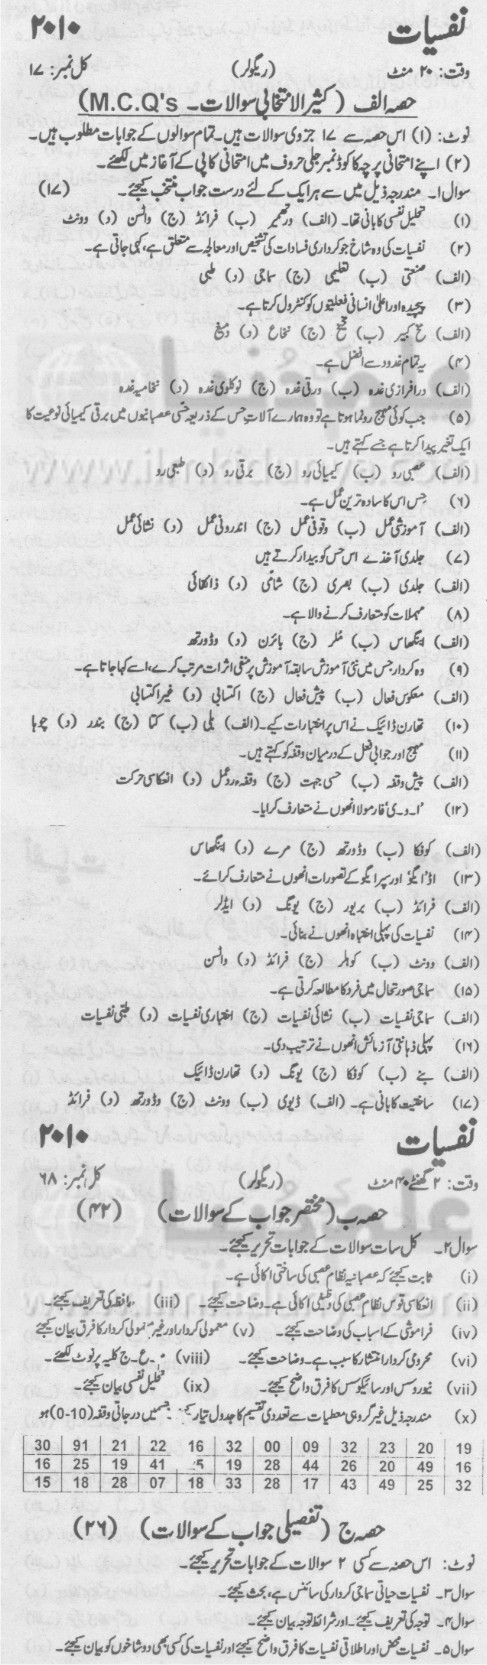 نفسیات ۲۰۱۰
وقت: ۲۰ منٹ (ریگولر) کل نمبر: ۱۷
حصہ الف (کثیر الانتخابی سوالات - M.C.Q's)
نوٹ: (۱) اس حصہ سے ۱۷ جزوی سوالات ہیں۔ تمام سوالوں کے جوابات مطلوب ہیں۔
(۲) اپنے امتحانی پرچہ کا کوڈ نمبر جلی حروف میں امتحانی کاپی کے آغاز میں لکھئے۔
سوال ۱۔ مندرجہ ذیل میں سے ہر ایک کے لئے درست جواب منتخب کیجئے۔ (۱۷)
(۱) تحلیل نفسی کا بانی تھا۔ (الف) ورتھیمر (ب) فرائڈ (ج) واٹسن (د) وونٹ
(۲) نفسیات کی وہ شاخ جو کرداری فسادات کی تشخیص اور معالجہ سے متعلق ہے، کہی جاتی ہے۔
(الف) صنعتی (ب) تعلیمی (ج) سماجی (د) طبی
(۳) پیچیدہ اور اعلیٰ انسانی فعلیتوں کو کنٹرول کرتا ہے۔
(الف) مخ کبیر (ب) مخیخ (ج) نخاع (د) دمیغ
(۴) یہ تمام غدود سے افضل ہے۔
(الف) درافرازی غدہ (ب) ورقی غدہ (ج) نوکلوی غدہ (د) نخامیہ غدہ
(۵) جب کوئی مہیج رونما ہوتا ہے تو وہ ہمارے آلات حس کے ذریعہ حسی عصبانیوں میں برقی کیمیائی نوعیت کا
ایک تغیر پیدا کرتا ہے جسے کہتے ہیں۔
(الف) عصبی رو (ب) کیمیائی رو (ج) برقی رو (د) طبعی رو
(۶) جس اس کا سادہ ترین عمل ہے۔
(الف) آموزشی عمل (ب) وقوفی عمل (ج) اندرونی عمل (د) نشائی عمل
(۷) جلدی آخذے اس حس کو بیدار کرتے ہیں
(الف) جلدی (ب) بصری (ج) شامی (د) ذائقائی
(۸) مہملات کو متعارف کرنے والا ہے۔
(الف) ابنگھاس (ب) ملر (ج) بائرن (د) وڈورتھ
(۹) وہ کردار جس میں نئی آموزش سابقہ آموزش پر منفی اثرات مرتب کرے، اسے کہا جاتا ہے۔
(الف) معکوس فعال (ب) پیش فعال (ج) اکتسابی (د) غیر اکتسابی
(۱۰) تھارن ڈائیک نے اس پر اختبارات کیے۔ (الف) بلی (ب) کتا (ج) بندر (د) چوہا
(۱۱) مہیج اور جوابی فعل کے درمیان وقفہ کو کہتے ہیں۔
(الف) پیش وقفہ (ب) حسی جہت (ج) وقفہ ردعمل (د) انعکاسی حرکت
(۱۲) 'ا۔و۔ی' فارمولا انھوں نے متعارف کرایا۔
(الف) کوفکا (ب) وڈورتھ (ج) مرے (د) ابنگھاس
(۱۳) اڈ ایگو اور سپر ایگو کے تصورات انھوں نے متعارف کرائے۔
(الف) فرائڈ (ب) بریور (ج) یونگ (د) ایڈلر
(۱۴) نفسیات کی پہلی اختبارگاہ انھوں نے بنائی۔
(الف) وونٹ (ب) کوہلر (ج) فرائڈ (د) واٹسن
(۱۵) سماجی صورتحال میں فرد کا مطالعہ کرتی ہے۔
(الف) سماجی نفسیات (ب) نشائی نفسیات (ج) اختباری نفسیات (د) طبی نفسیات
(۱۶) پہلی ذہانتی آزمائش انھوں نے ترتیب دی۔
(الف) بنے (ب) کوفکا (ج) یونگ (د) تھارن ڈائیک
(۱۷) ساختیت کا بانی ہے۔ (الف) ڈیوی (ب) وونٹ (ج) وڈورتھ (د) فرائڈ
نفسیات ۲۰۱۰
وقت: ۲ گھنٹے ۴۰ منٹ (ریگولر) کل نمبر: ۶۸
حصہ ب (مختصر جواب کے سوالات) (۴۲)
سوال ۲۔ کل سات سوالات کے جوابات تحریر کیجئے۔
(i) ثابت کیجئے کہ عصبانیہ نظام عصبی کی ساختی اکائی ہے۔
(ii) انعکاسی قوس نظام عصبی کی وظیفی اکائی ہے۔ وضاحت کیجئے۔ (iii) حافظہ کی تعریف کیجئے۔
(iv) فراموشی کے اسباب کی وضاحت کیجئے۔ (v) معمولی کردار اور غیر معمولی کردار کا فرق بیان کیجئے
(vi) محرومی کردار انتشار کا سبب ہے۔ وضاحت کیجئے۔ (viii) م۔ع۔ج کلیہ پر نوٹ لکھئے۔
(vii) نیوروسس اور سائیکوسس کا فرق واضح کیجئے۔ (ix) تحلیل نفسی بیان کیجئے۔
(x) مندرجہ ذیل غیر گروہی معطیات سے تعددی تقسیم کا جدول تیار کیجئے جس میں درجاتی وقفہ (10-0) ہو
30 91 21 22 16 32 00 09 32 23 20 19
16 25 19 41 45 19 28 44 26 20 49 16
15 18 28 07 18 33 28 17 43 49 25 32
حصہ ج (تفصیلی جواب کے سوالات) (۲۶)
نوٹ: اس حصہ سے کسی ۲ سوالات کے جوابات تحریر کیجئے۔
سوال ۳۔ نفسیات حیاتی سماجی کردار کی سائنس ہے، بحث کیجئے۔
سوال ۴۔ توجہ کی تعریف کیجئے۔ اور شرائط توجہ بیان کیجئے۔
سوال ۵۔ نفسیات محض اور اطلاقی نفسیات کا فرق واضح کیجئے اور نفسیات کی کسی بھی دو شاخوں کو بیان کیجئے۔